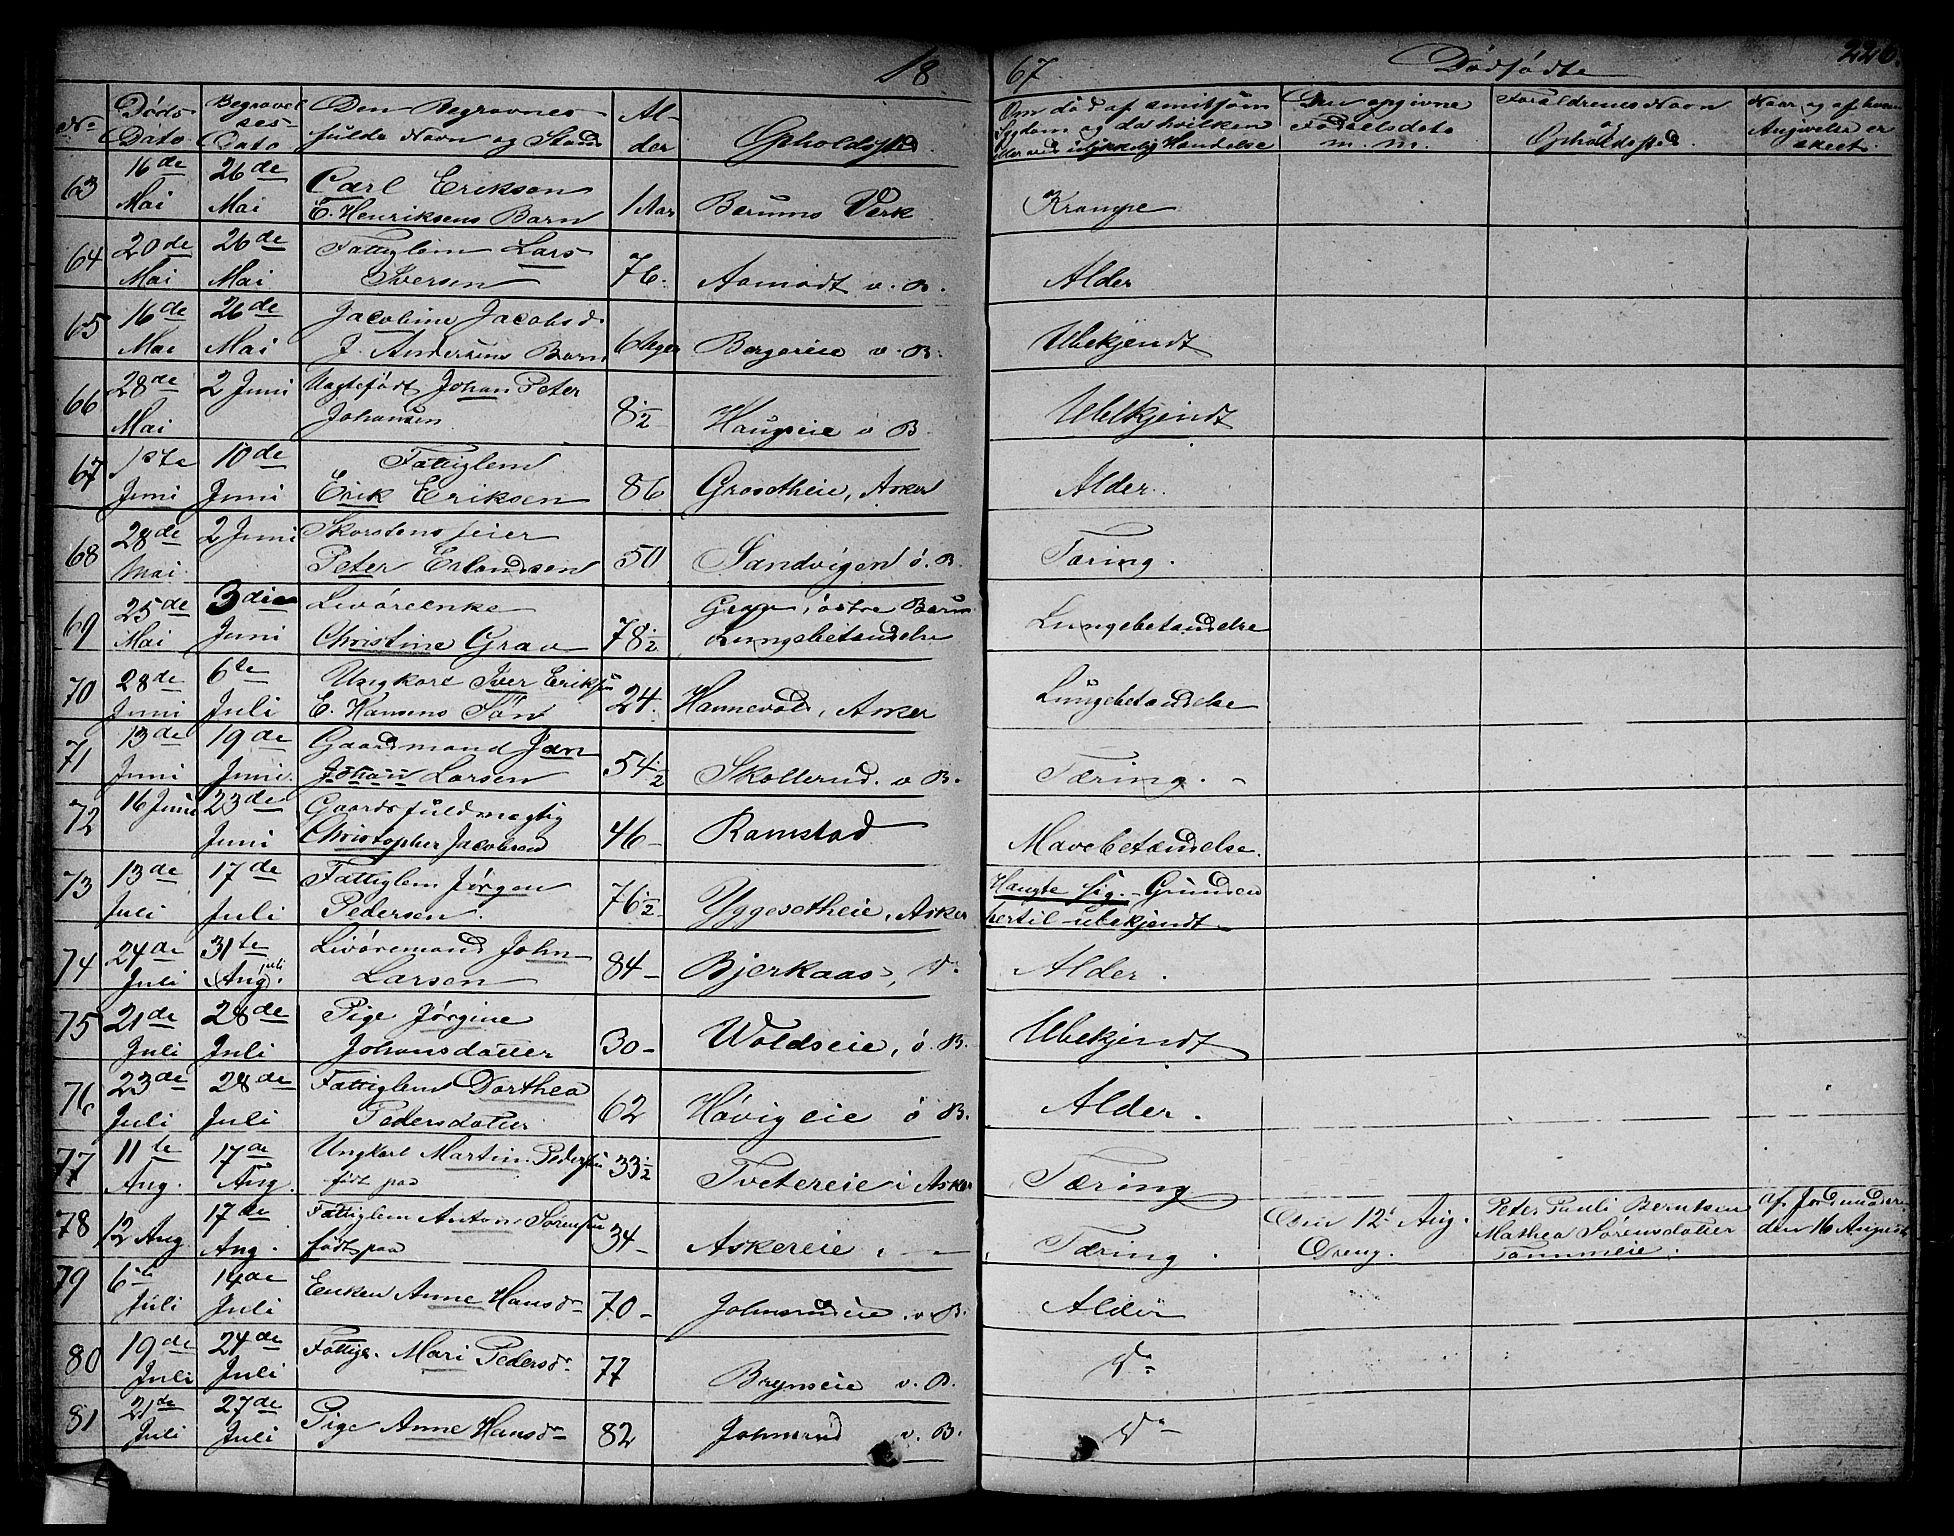 18 67. Dødfødte 226.
No Døds Dato Begravelses Dato Den Begravnes fulde Navn og Stand Alder Opholdssted Om død af smitsom Sygdom og da hvilken eller ved ulykkelig Hændelse Den opgivne Fødselsdato m. m. Forældrenes Navn og Opholdssted Naar og af hvem Angivelse er skeet.
63 16de Mai 26de Mai Carl Eriksen E. Henriksens Barn 1 Aar Bærums Værk Krampe
64 20de Mai 26de Mai Fattiglem Lars Iversen 76. Aamodt v. B. Alder
65 16de Mai 26de Mai Jacobine Jacobsd. J. Andersens Barn 6 Uger Bergereie v. B. Ubekjendt
66 28de Mai 2 Juni Uægtefødt Johan Peter Johansen 8½ Haugseie v B. Ubekjendt
67 1ste Juni 10de Juni Fattiglem Erik Eriksen 86 Grosetheie, Asker Alder.
68 28de Mai. 2 Juni Skorstensfeier Peter Erlandsen 50 Sandvigen ø. B. Tæring.
69 25de Mai 3die Juni Livøreenke Christine Grav 78½ Grav, østre Bærum Lungebetændelse Lungebetændelse
70 28de Juni 6te Juli Ungkarl Iver Eriksen E. Hansens Søn 24. Hannevold, Asker Lungebetændelse
71 13de Juni 19de Juni. Gaardmand Jan Johan Larsen 54½ Skollerud. v B. Tæring. -
72 16 Juni 23de Juni Gaardsfuldmægtig Christopher Jacobsen 46- Ramstad Mavebetændelse.
73 13de Juli 17de Juli Fattiglem Jørgen Pedersen. 76½ Yggesetheie, Asker Hængte sig. - Grunden hertil ubekjendt -
74 24de Juli 31te Aug. Juli Livøremand John Larsen 84- Bjerkaas, do Alder.
75 21de Juli 28de Juli Pige Jørgine Johansdatter 30- Woldseie, ø. B. Ubekjendt
76 23de Juli 28de Juli Fattiglem Dorthea Pedersdatter 62 Høvigeie ø B. Alder.
77 11te Aug. 17de Aug. Ungkarl Martin Pedersen født paa 33½ Tvetereie i Asker Tæring
78 12 Aug 17de Aug. Fattiglem Anton Sørensen født paa 34- Askereie i - Tæring. Den 12te Aug. Dreng. Peter Pauli Berntsen Mathea Sørensdatter Tømmeie. af Jordmoderen den 16 August
79 6te Juli 14de Juli Enken Anne Hansdr 70- Johnsrudeie v B. Alder
80 19de Juli 24de Juli Fattige. Mari Pedersdr 77 Brynseie v. B. do
81 21de Juli 27de Juli Pige Anne Hansdr 82 Johnsrud v. B. do